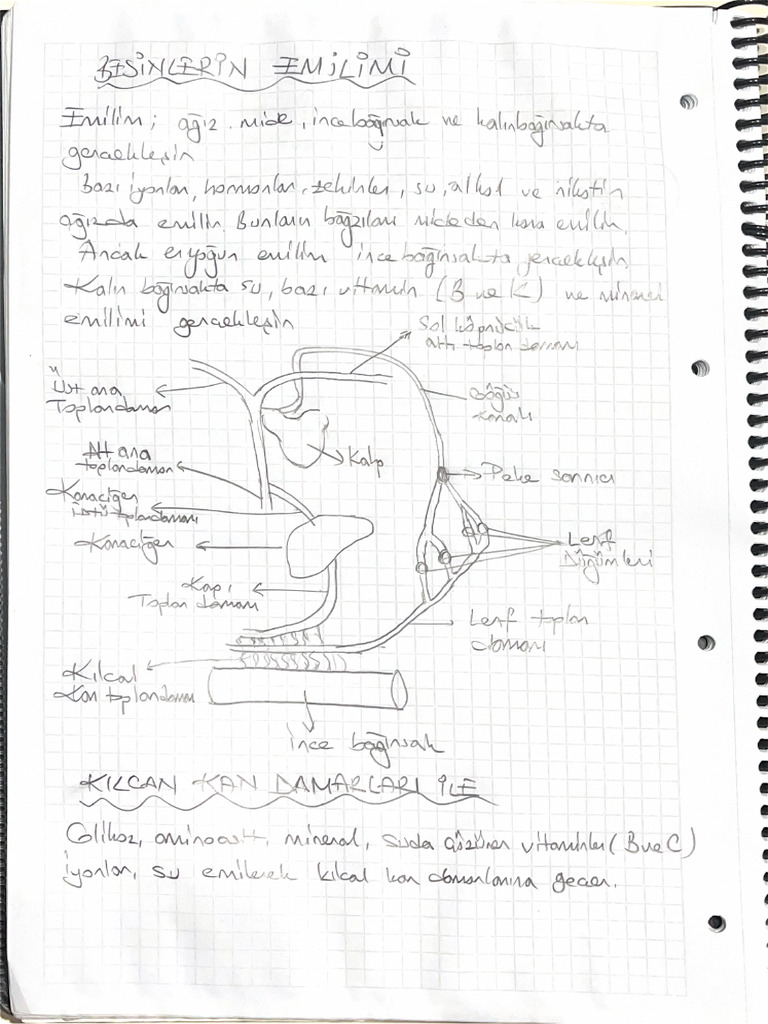 BESİNLERİN EMİLİMİ
Emilim; ağız, mide, incebağırsak ve kalınbağırsakta
gerçekleşir
Bazı iyonlar, hormonlar, şekerler, su, alkol ve nikotin
ağızda emilir. Bunların bağzıları mideden kana emilir.
Ancak en yoğun emilim ince bağırsakta gerçekleşir.
Kalın bağırsakta su, bazı vitamin (B ve K) ve mineral
emilimi gerçekleşir
Sol köprücük
altı toplan damarı
Üst ana
Toplardamarı
Göğüs
kanalı
Kalp
Alt ana
toplardamarı
Peke sarnıcı
Karaciğer
üstü toplardamarı
Karaciğer
Lenf
Düğümleri
Kapı
Toplar damarı
Lenf toplar
damarı
Kılcal
Kan toplardamarı
İnce bağırsak
KILCAN KAN DAMARLARI İLE
Glikoz, aminoasit, mineral, suda çözünen vitaminler (B ve C)
iyonlar, su emilerek kılcal kan damarlarına geçer.